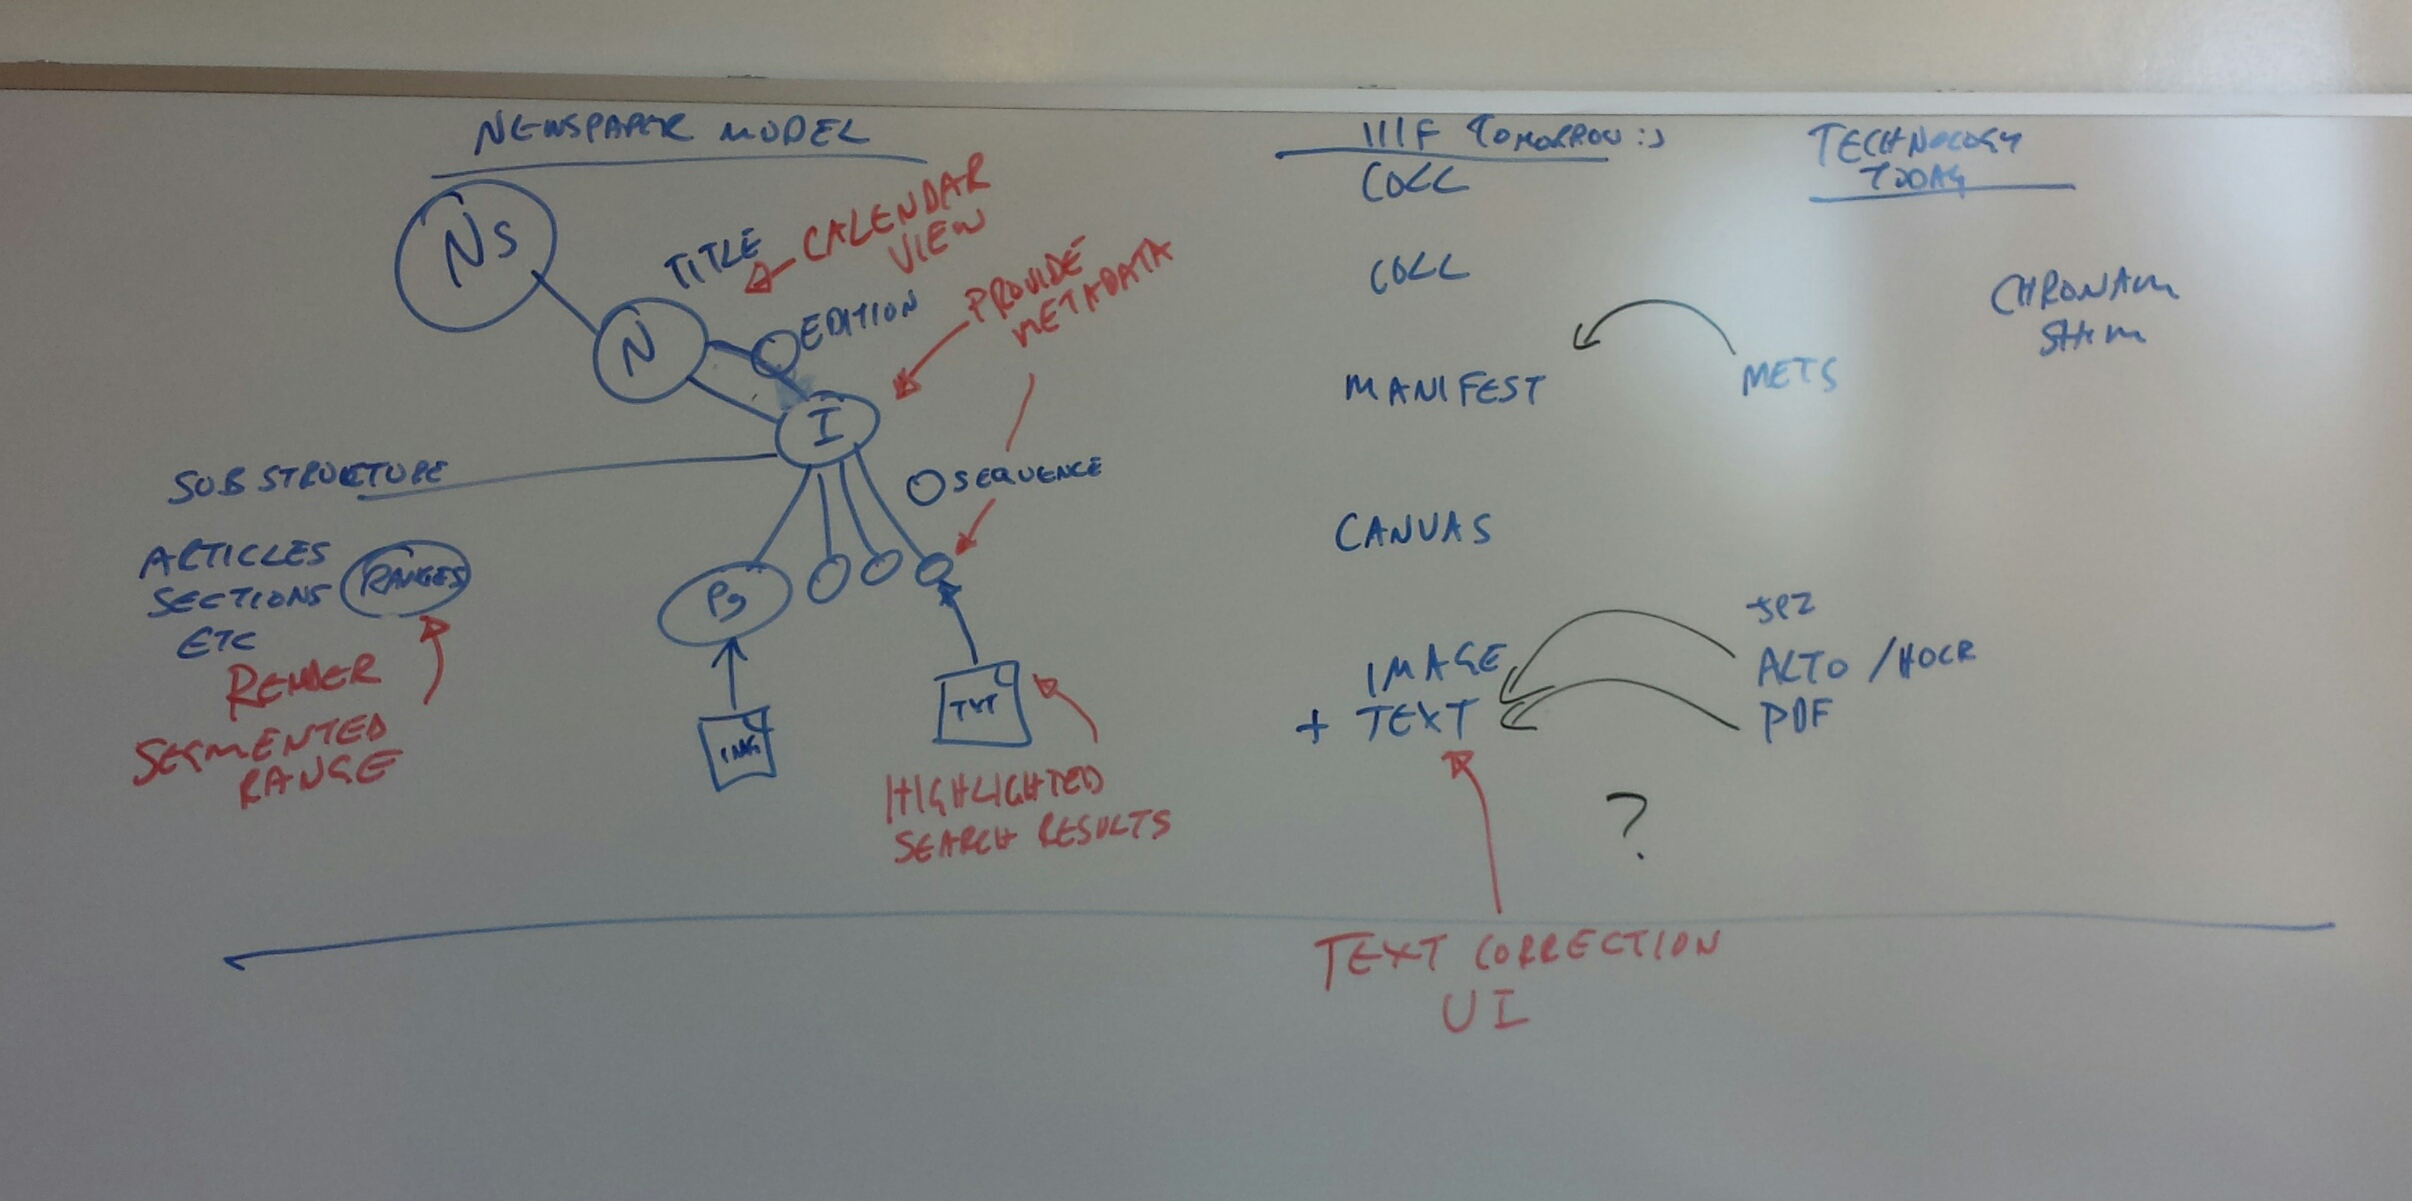 NEWSPAPER MODEL
NS
N
TITLE
CALENDAR
VIEW
EDITION
PROVIDE
METADATA
I
SUB STRUCTURE
SEQUENCE
ARTICLES
SECTIONS
ETC
RANGES
RENDER
SEGMENTED
RANGE
Pg
IMG
TXT
HIGHLIGHTED
SEARCH RESULTS
IIIF TOMORROW :)
COLL
COLL
MANIFEST
CANVAS
IMAGE
+ TEXT
?
TEXT CORRECTION
UI
TECHNOLOGY
TODAY
CHRONAM
SHIM
METS
JP2
ALTO / HOCR
PDF